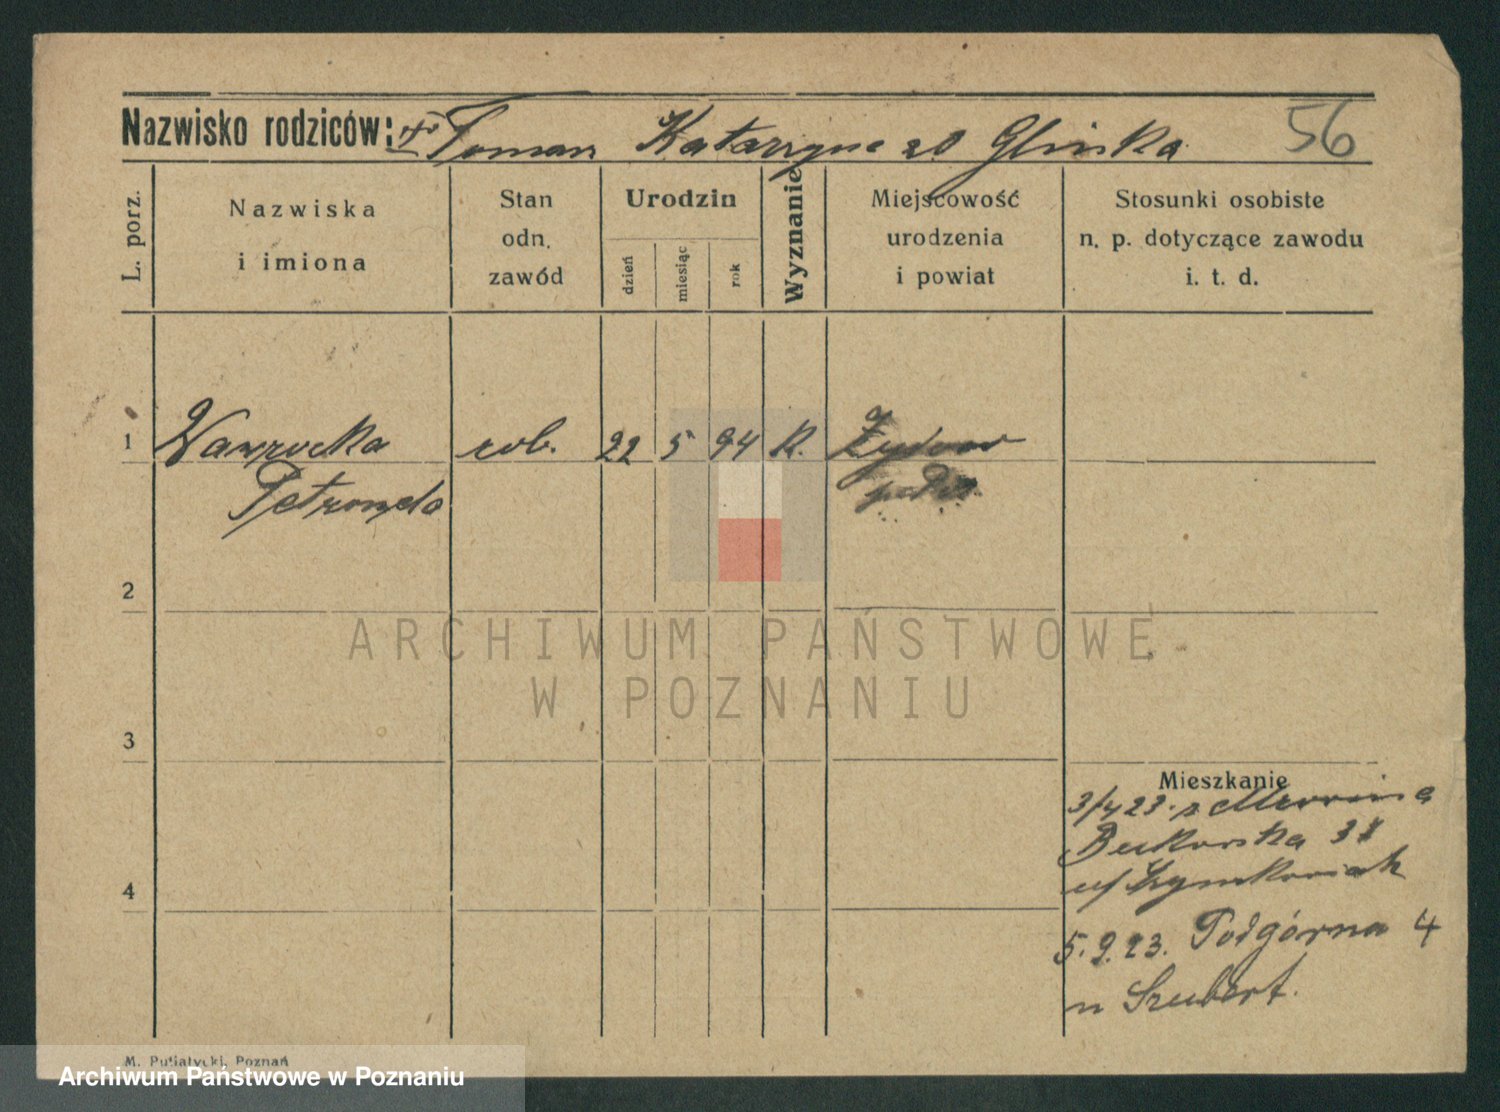 Nazwisko rodziców: Tomasz Katarzyna zd Glinska 56
L. porz.
Nazwiska
i imiona
Stan
odn.
zawód
Urodzin
dzień
miesiąc
rok
Wyznanie
Miejscowość
urodzenia
i powiat
Stosunki osobiste
n. p. dotyczące zawodu
i. t. d.
1 Wawrocka rob. 22 5 94 K. Żydowo
Petronela
2
3
4
Mieszkanie
3/4 23. z
Bukowska
u/ Szymkowiak
5.9.23. Podgórna 4
u Szubert.
M. Putiatycki, Poznań
ARCHIWUM PAŃSTWOWE
W POZNANIU
Archiwum Państwowe w Poznaniu